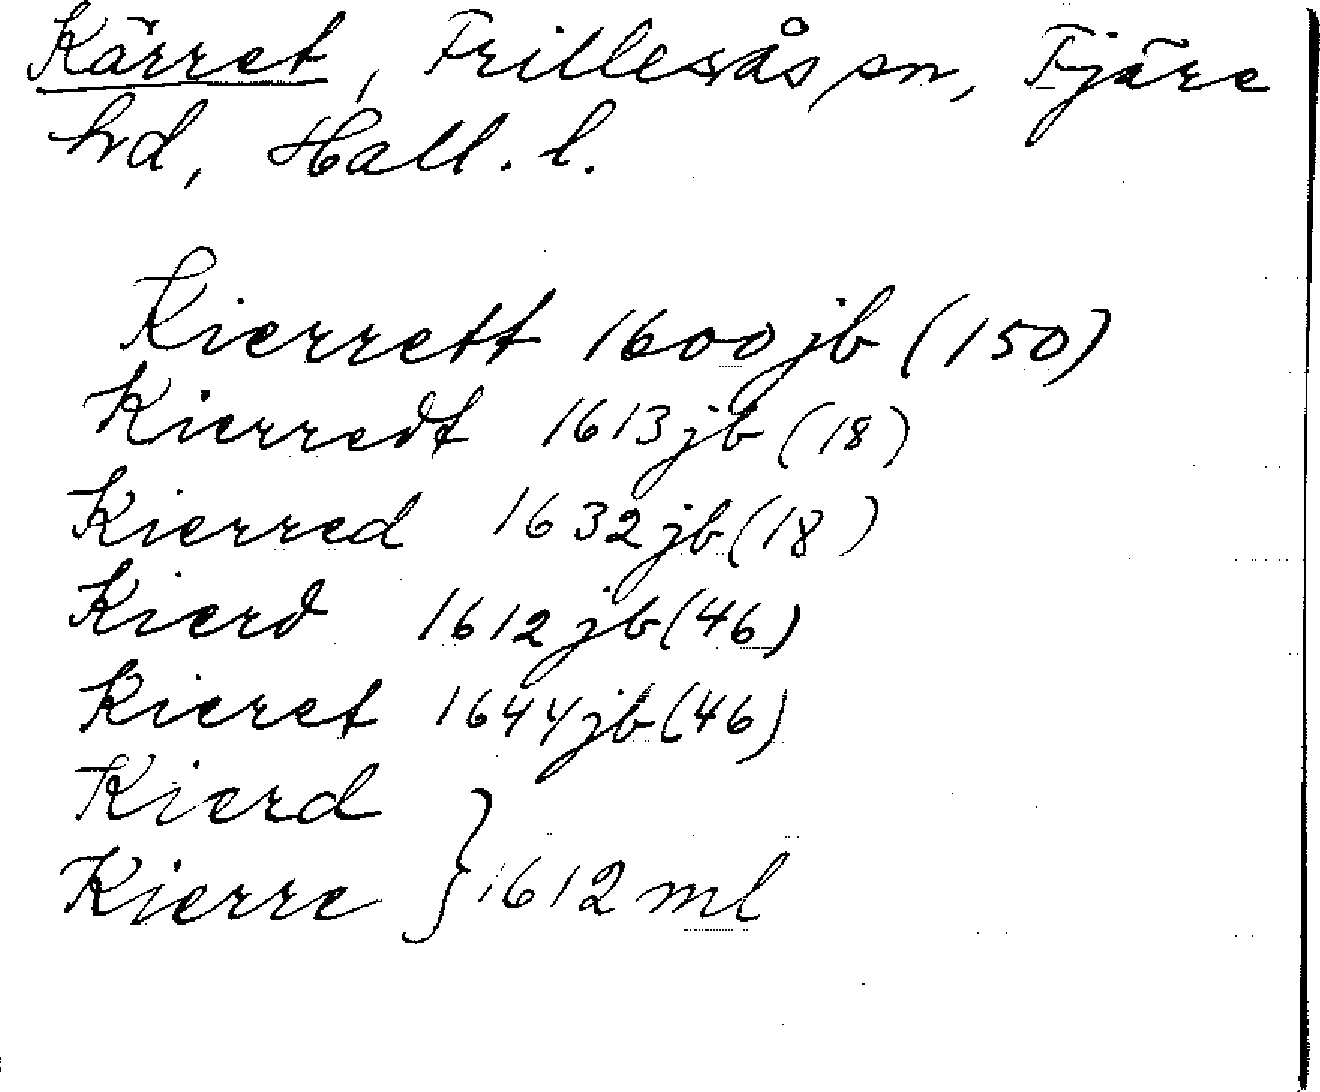 Kärret, Frillesås sn, Fjäre
hd, Hall. l.
Kierrett 1600 jb (150)
Kierredt 1613 jb (18)
Kierred 1632 jb (18)
Kierd 1612 jb (46)
Kieret 1644 jb (46)
Kierd
Kierre } 1612 ml